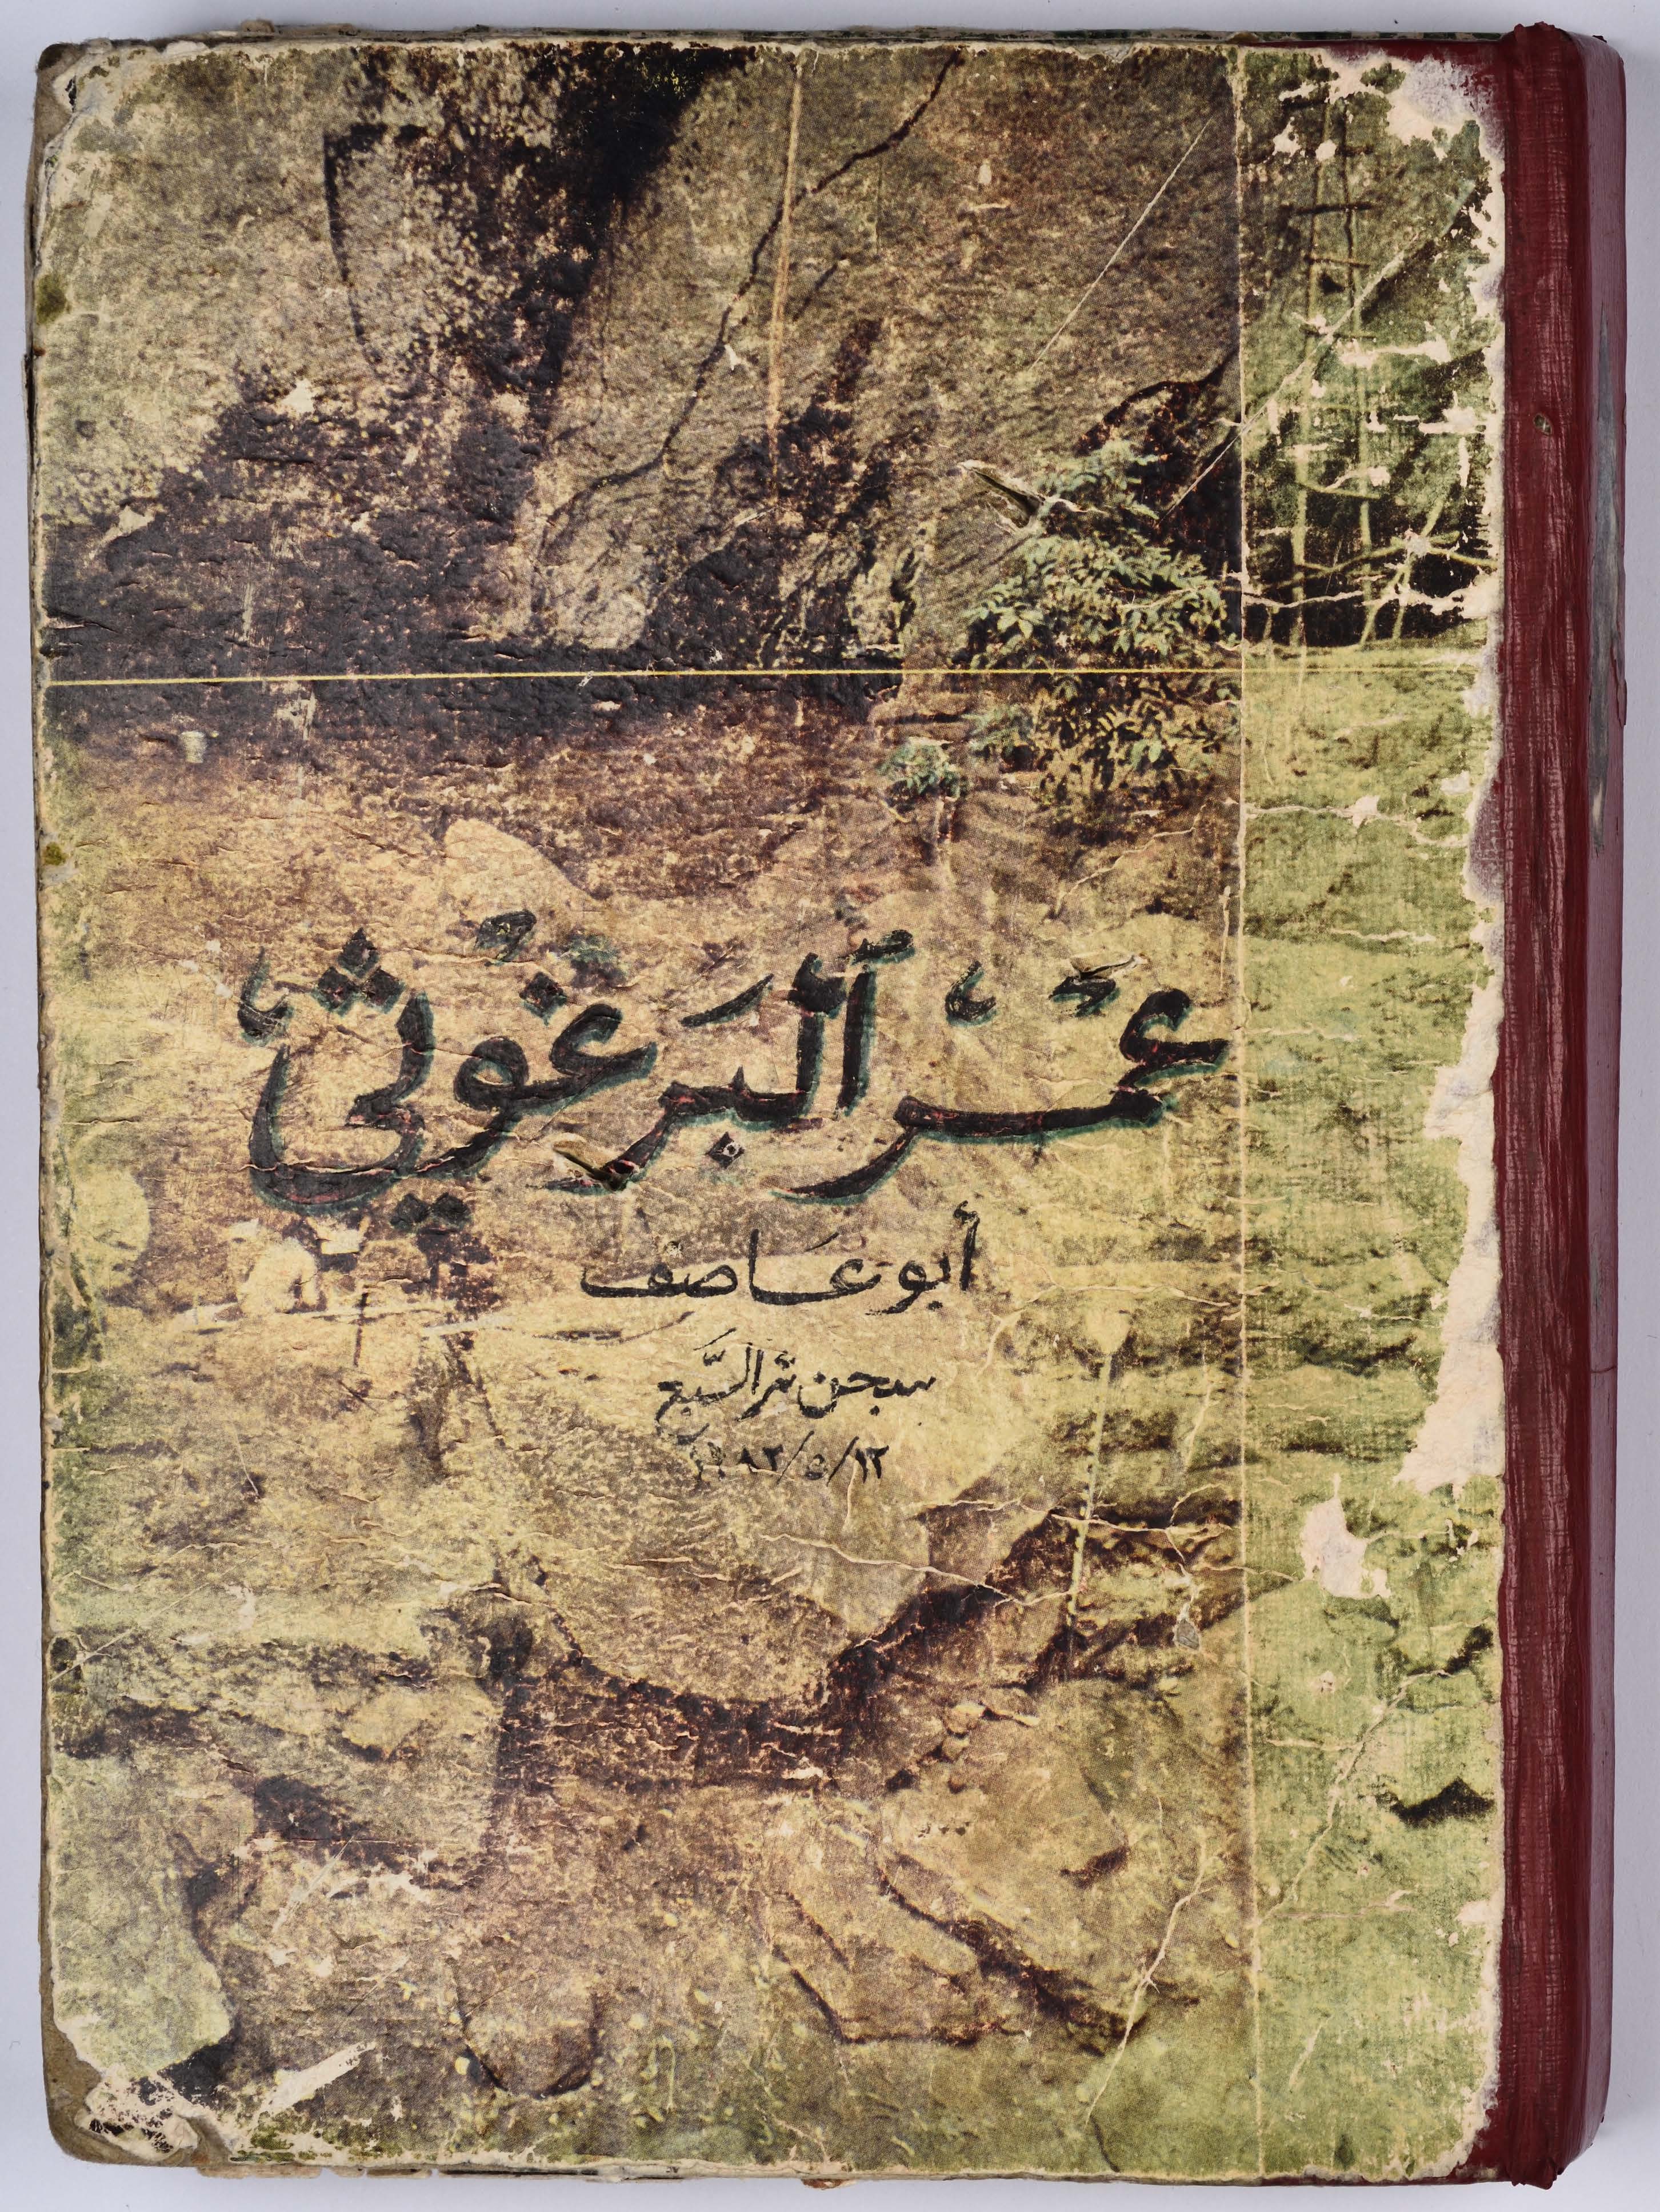 عُمَرُ ٱلْبَرْغُوثِيُّ
أبو عَاصف
سجن بئر السَّبع
١٩٨٣/٥/١٢